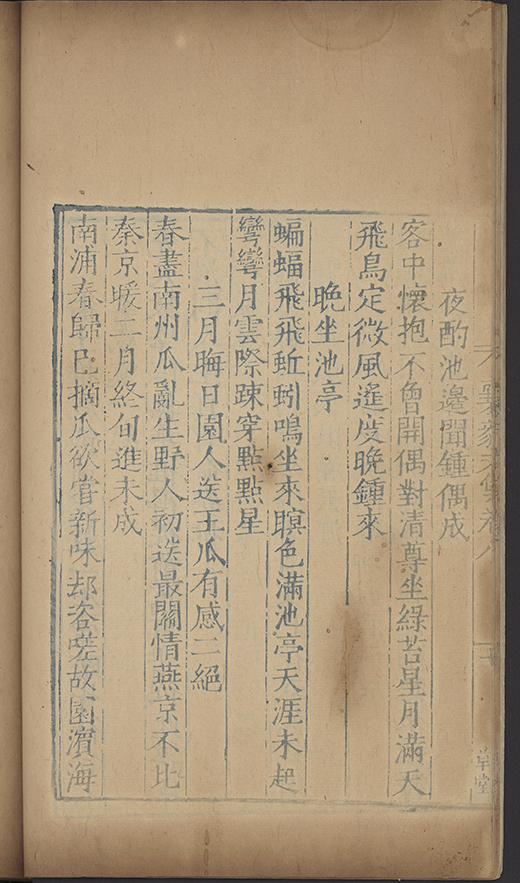 夜酌池邊聞鍾偶成
客中懷抱不曾開偶對清尊坐綠苔星月滿天
飛鳥定微風遥度晚鍾來
晚坐池亭
蝙蝠飛飛蚯蚓鳴坐來暝色滿池亭天涯未起
彎彎月雲際踈穿點點星
三月晦日園人送王瓜有感二絕
春盡南州瓜亂生野人初送最關情燕京不比
秦京暖二月終旬進未成
南浦春歸已摘瓜欲嘗新味却咨嗟故園濱海
草堂